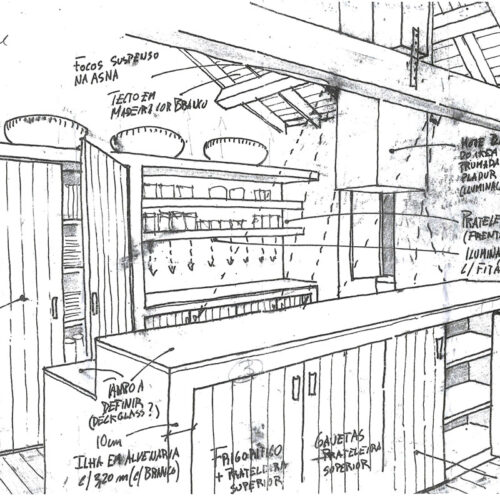 FOCOS SUSPENSO
NA ASNA
TECTO EM
MADEIRA COR BRANCO
DO AREA
PRUMADA
PLADUR
PRATELE
(FRENT
ILUMINA
C/ FITA
TAMPO A
DEFINIR
(DECKGLASS?)
10cm
ILHA EM ALVENARIA
C/ 3,20 m (C/ BRANCO)
3
FRIGORIFICO
+ PRATELEIRA
SUPERIOR
GAVETAS
+ PRATELEIRA
SUPERIOR